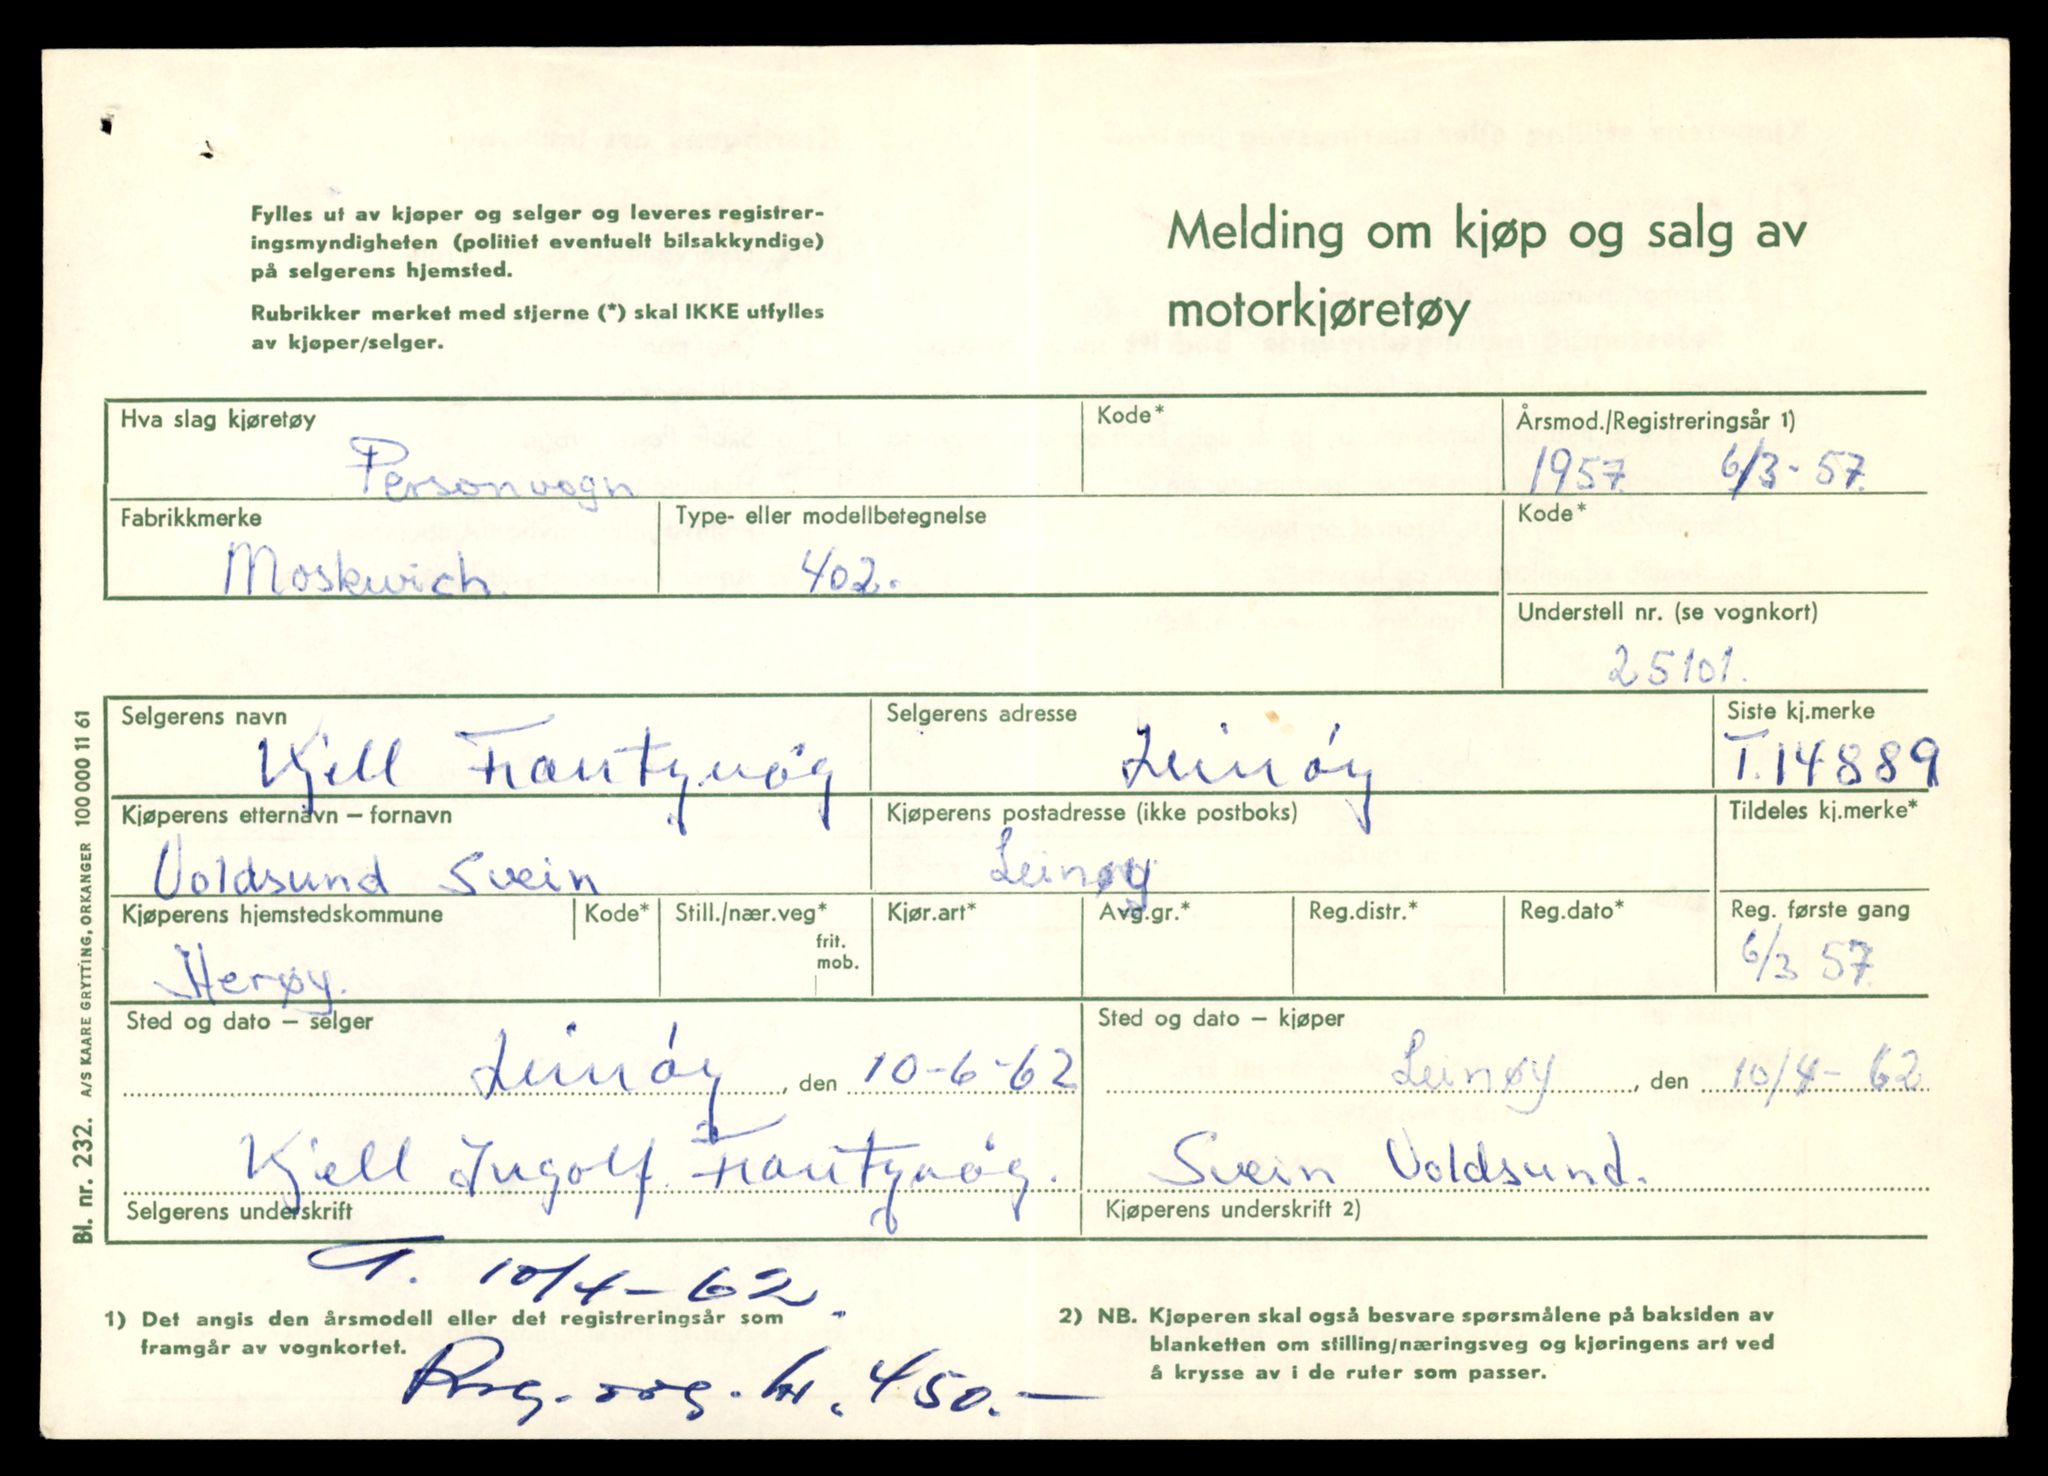 Fylles ut av kjøper og selger og leveres registrer-
ingsmyndigheten (politiet eventuelt bilsakkyndige)
på selgerens hjemsted.
Rubrikker merket med stjerne (*) skal IKKE utfylles
av kjøper/selger.
Melding om kjøp og salg av
motorkjøretøy
Hva slag kjøretøy
Personvogn
Kode*
Årsmod./Registreringsår 1)
1957. 6/3-57.
Fabrikkmerke
Moskwich.
Type- eller modellbetegnelse
402.
Kode*
Understell nr. (se vognkort)
25101.
Selgerens navn
Kjell
Selgerens adresse
Leinøy
Siste kj.merke
T.14889
Kjøperens etternavn – fornavn
Voldsund Svein
Kjøperens postadresse (ikke postboks)
Leinøy
Tildeles kj.merke*
Kjøperens hjemstedskommune
Herøy.
Kode*
Still./nær.veg*
frit.
mob.
Kjør.art*
Avg.gr.*
Reg.distr.*
Reg.dato*
Reg. første gang
6/3 57.
Sted og dato – selger
Leinøy, den 10-6-62
Sted og dato – kjøper
Leinøy, den 10/4-62
Kjell Ingolf
Selgerens underskrift
Svein Voldsund.
Kjøperens underskrift 2)
T. 10/4-62.
1) Det angis den årsmodell eller det registreringsår som
framgår av vognkortet.
Reg. avg. kr. 450.-
2) NB. Kjøperen skal også besvare spørsmålene på baksiden av
blanketten om stilling/næringsveg og kjøringens art ved
å krysse av i de ruter som passer.
Bl. nr. 232. A/S KAARE GRYTTING, ORKANGER 100 000 11 61